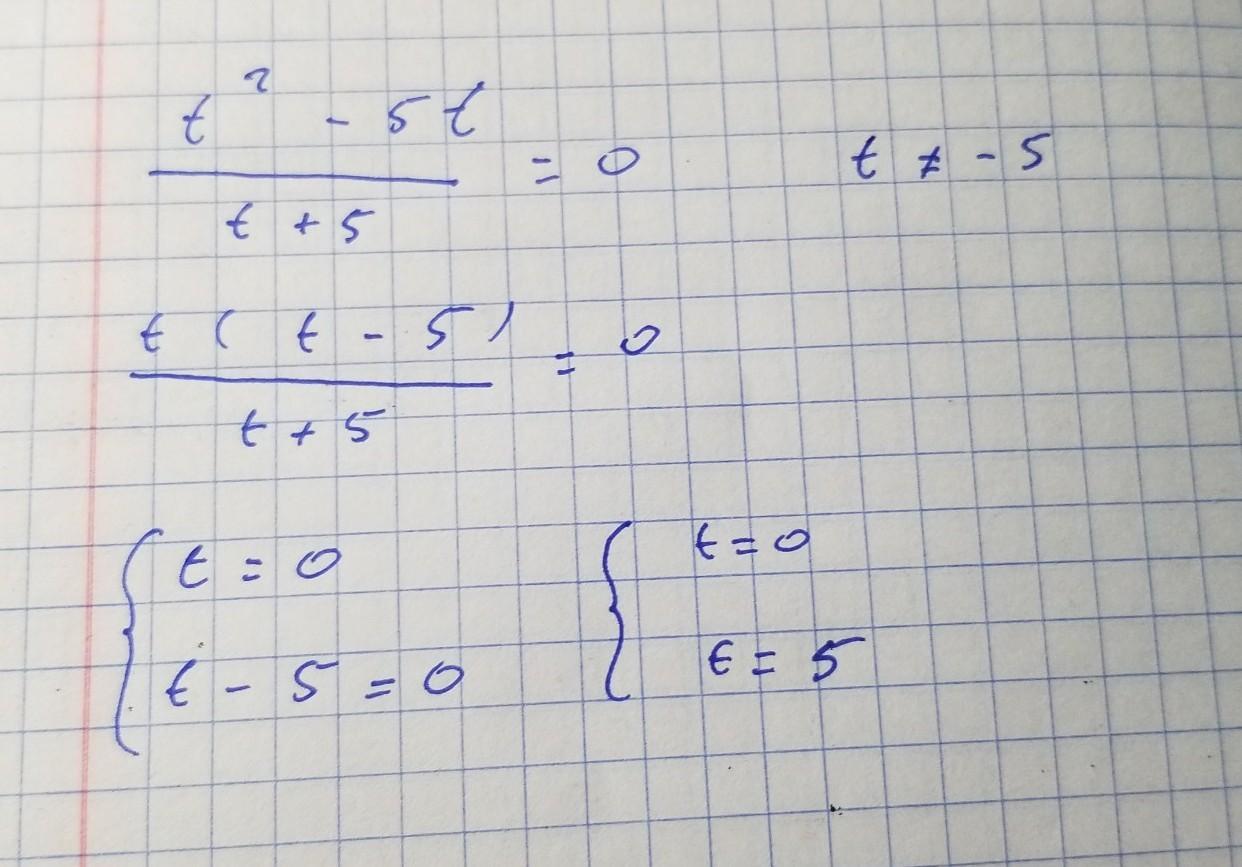 t² - 5t / t + 5 = 0 t ≠ -5
t(t - 5) / t + 5 = 0
{ t = 0 { t = 0
t - 5 = 0 t = 5